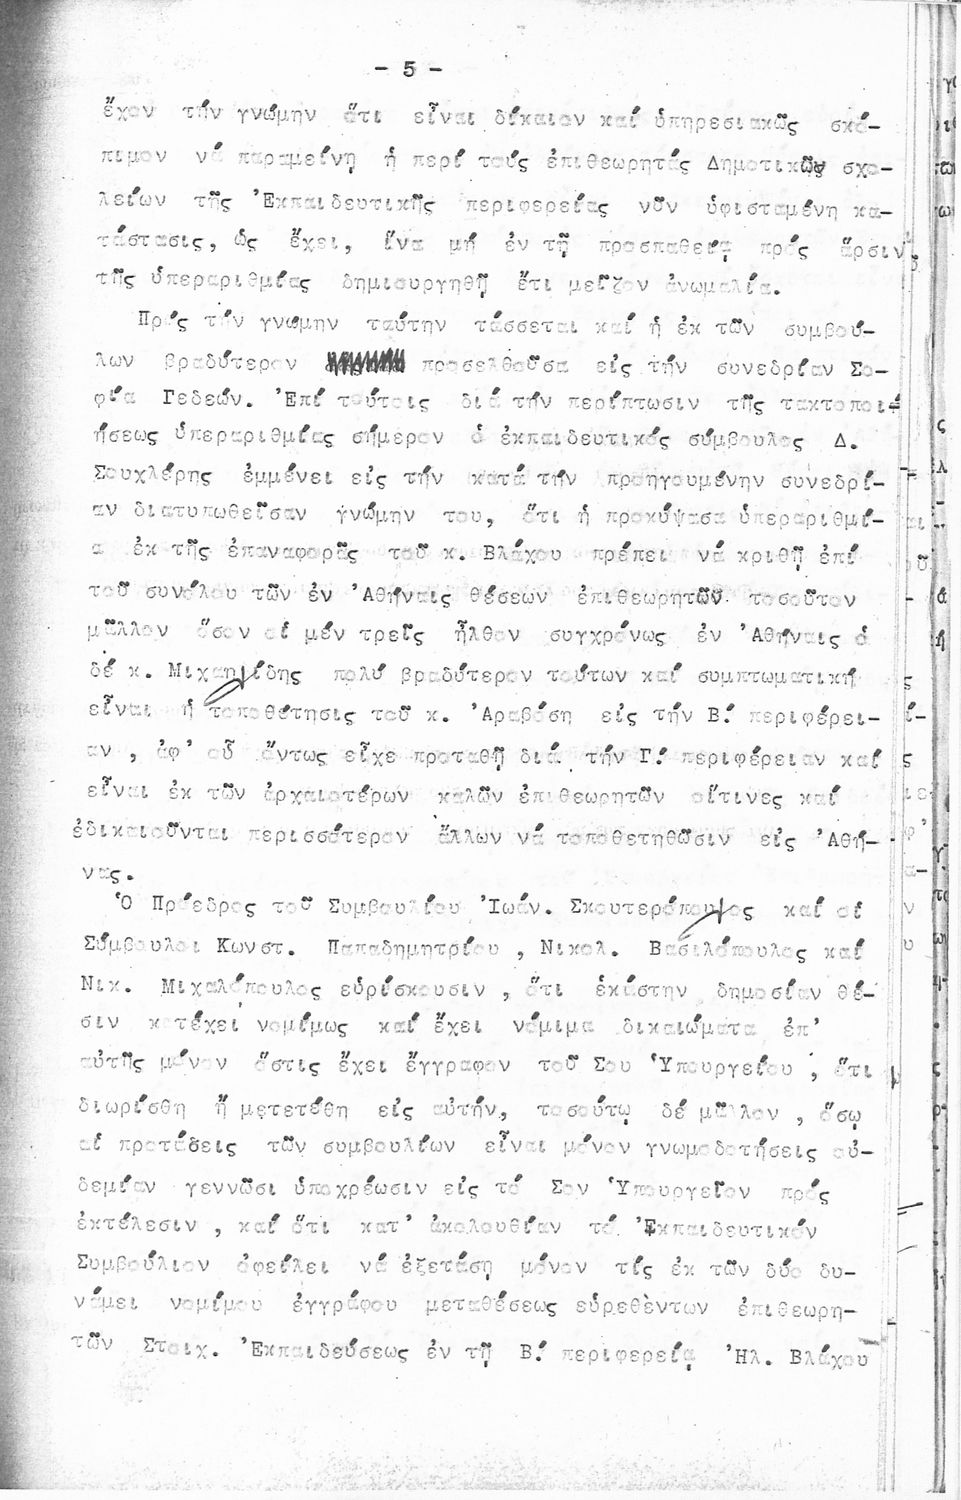 - 5 -
ἔχον τήν γνώμην ὅτι εἶναι δίκαιον καί ὑπηρεσιακῶς σκό-
πιμον νά παραμείνη ἡ περί τούς ἐπιθεωρητάς Δημοτικῶν σχο-
λείων τῆς Ἐκπαιδευτικῆς περιφερείας νῦν ὑφισταμένη κα-
τάστασις, ὡς ἔχει, ἵνα μή ἐν τῇ προσπαθείᾳ πρός ἄρσιν
τῆς ὑπεραριθμίας δημιουργηθῇ ἔτι μεῖζον ἀνωμαλία.
Πρός τήν γνώμην ταύτην τάσσεται καί ἡ ἐκ τῶν συμβού-
λων βραδύτερον προσελθοῦσα εἰς τήν συνεδρίαν Σο-
φία Γεδεών. Ἐπί τούτοις διά τήν περίπτωσιν τῆς τακτοποι-
ήσεως ὑπεραριθμίας σήμερον ὁ ἐκπαιδευτικός σύμβουλος Δ.
Σουχλέρης ἐμμένει εἰς τήν κατά τήν προηγουμένην συνεδρί-
αν διατυπωθεῖσαν γνώμην του, ὅτι ἡ προκύψασα ὑπεραριθμί-
α ἐκ τῆς ἐπαναφορᾶς τοῦ κ. Βλάχου πρέπει νά κριθῇ ἐπί
τοῦ συνόλου τῶν ἐν Ἀθήναις θέσεων ἐπιθεωρητῶν τοσοῦτον
μᾶλλον ὅσον οἱ μέν τρεῖς ἦλθον συγχρόνως ἐν Ἀθήναις ὁ
δέ κ. Μιχαηλίδης πολύ βραδύτερον τούτων καί συμπτωματική
εἶναι ἡ τοποθέτησις τοῦ κ. Ἀραβόση εἰς τήν Β! περιφέρει-
αν , ἀφ' οὗ ὄντως εἶχε προταθῆ διά τήν Γ! περιφέρειαν καί
εἶναι ἐκ τῶν ἀρχαιοτέρων καλῶν ἐπιθεωρητῶν οἵτινες καί
ἐδικαιοῦνται περισσότερον ἄλλων νά τοποθετηθῶσιν εἰς Ἀθή-
νας.
Ὁ Πρόεδρος τοῦ Συμβουλίου Ἰωάν. Σκουτερόπουλος καί οἱ
Σύμβουλοι Κωνστ. Παπαδημητρίου , Νικολ. Βασιλόπουλος καί
Νικ. Μιχαλόπουλος εὑρίσκουσιν , ὅτι ἑκάστην δημοσίαν θέ-
σιν κατέχει νομίμως καί ἔχει νόμιμα δικαιώματα ἐπ'
αὐτῆς μόνον ὅστις ἔχει ἔγγραφον τοῦ Σου Ὑπουργείου , ὅτι
διωρίσθη ἤ μετετέθη εἰς αὐτήν, τοσούτῳ δέ μᾶλλον , ὅσῳ
αἱ προτάσεις τῶν συμβουλίων εἶναι μόνον γνωμοδοτήσεις οὐ-
δεμίαν γεννῶσι ὑποχρέωσιν εἰς τό Σον Ὑπουργεῖον πρός
ἐκτέλεσιν , καί ὅτι κατ' ἀκολουθίαν τό Ἐκπαιδευτικόν
Συμβούλιον ὀφείλει νά ἐξετάσῃ μόνον τίς ἐκ τῶν δύο δυ-
νάμει νομίμου ἐγγράφου μεταθέσεως εὑρεθέντων ἐπιθεωρη-
τῶν Στοιχ. Ἐκπαιδεύσεως ἐν τῇ Β! περιφερείᾳ Ἠλ. Βλάχου